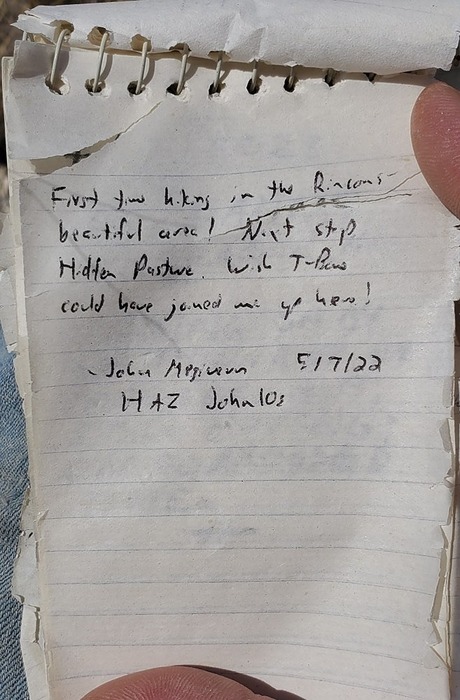 First time hiking in the Rincons-
beautiful area! Next stop
Hidden Pasture. Wish
could have joined me up here!
- John 5/17/22
HAZ John10s